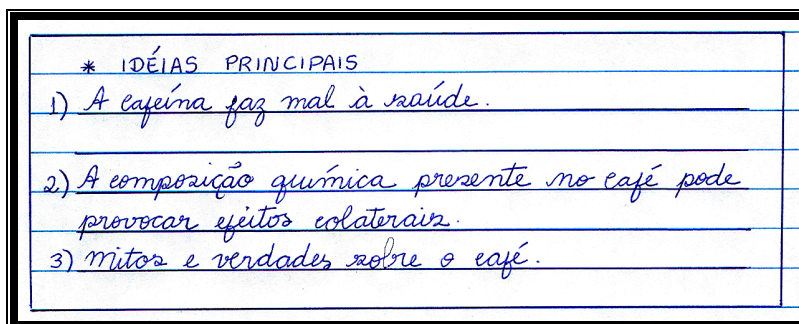 * IDÉIAS PRINCIPAIS
1) A cafeína faz mal à saúde.
2) A composição química presente no café pode
provocar efeitos colaterais.
3) Mitos e verdades sobre o café.